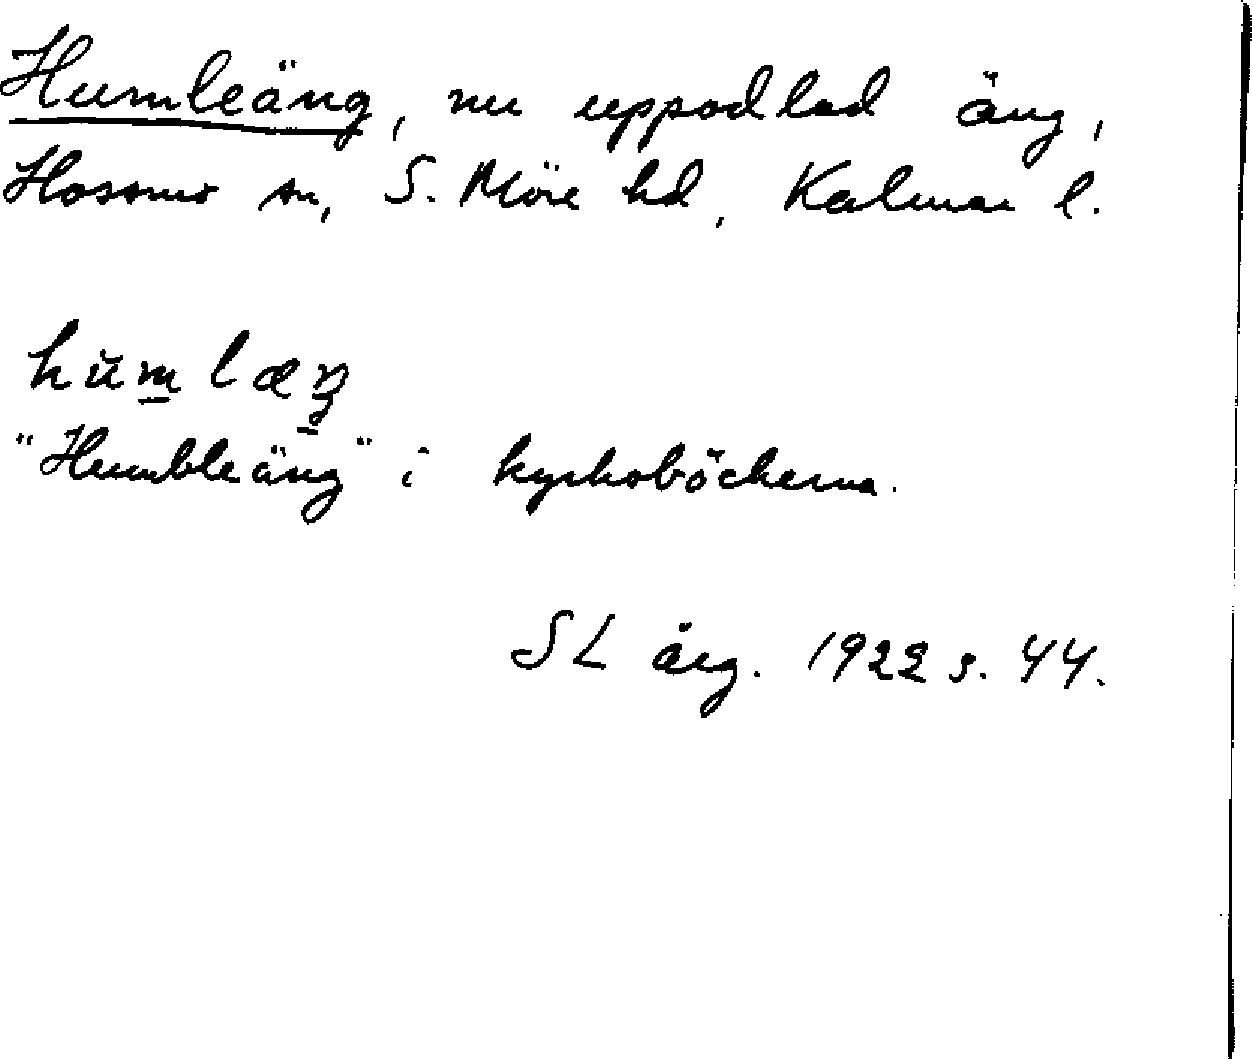 Humleäng, nu uppodlad äng,
Hossmo sn, S. Möre hd, Kalmar l.
hŭm̲læŋ̲
"Humbleäng" i kyrkoböckerna.
SL årg. 1922 s. 44.